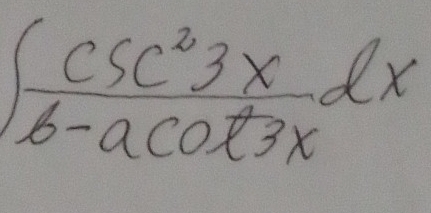 ∫ csc²3x / b-acot3x dx